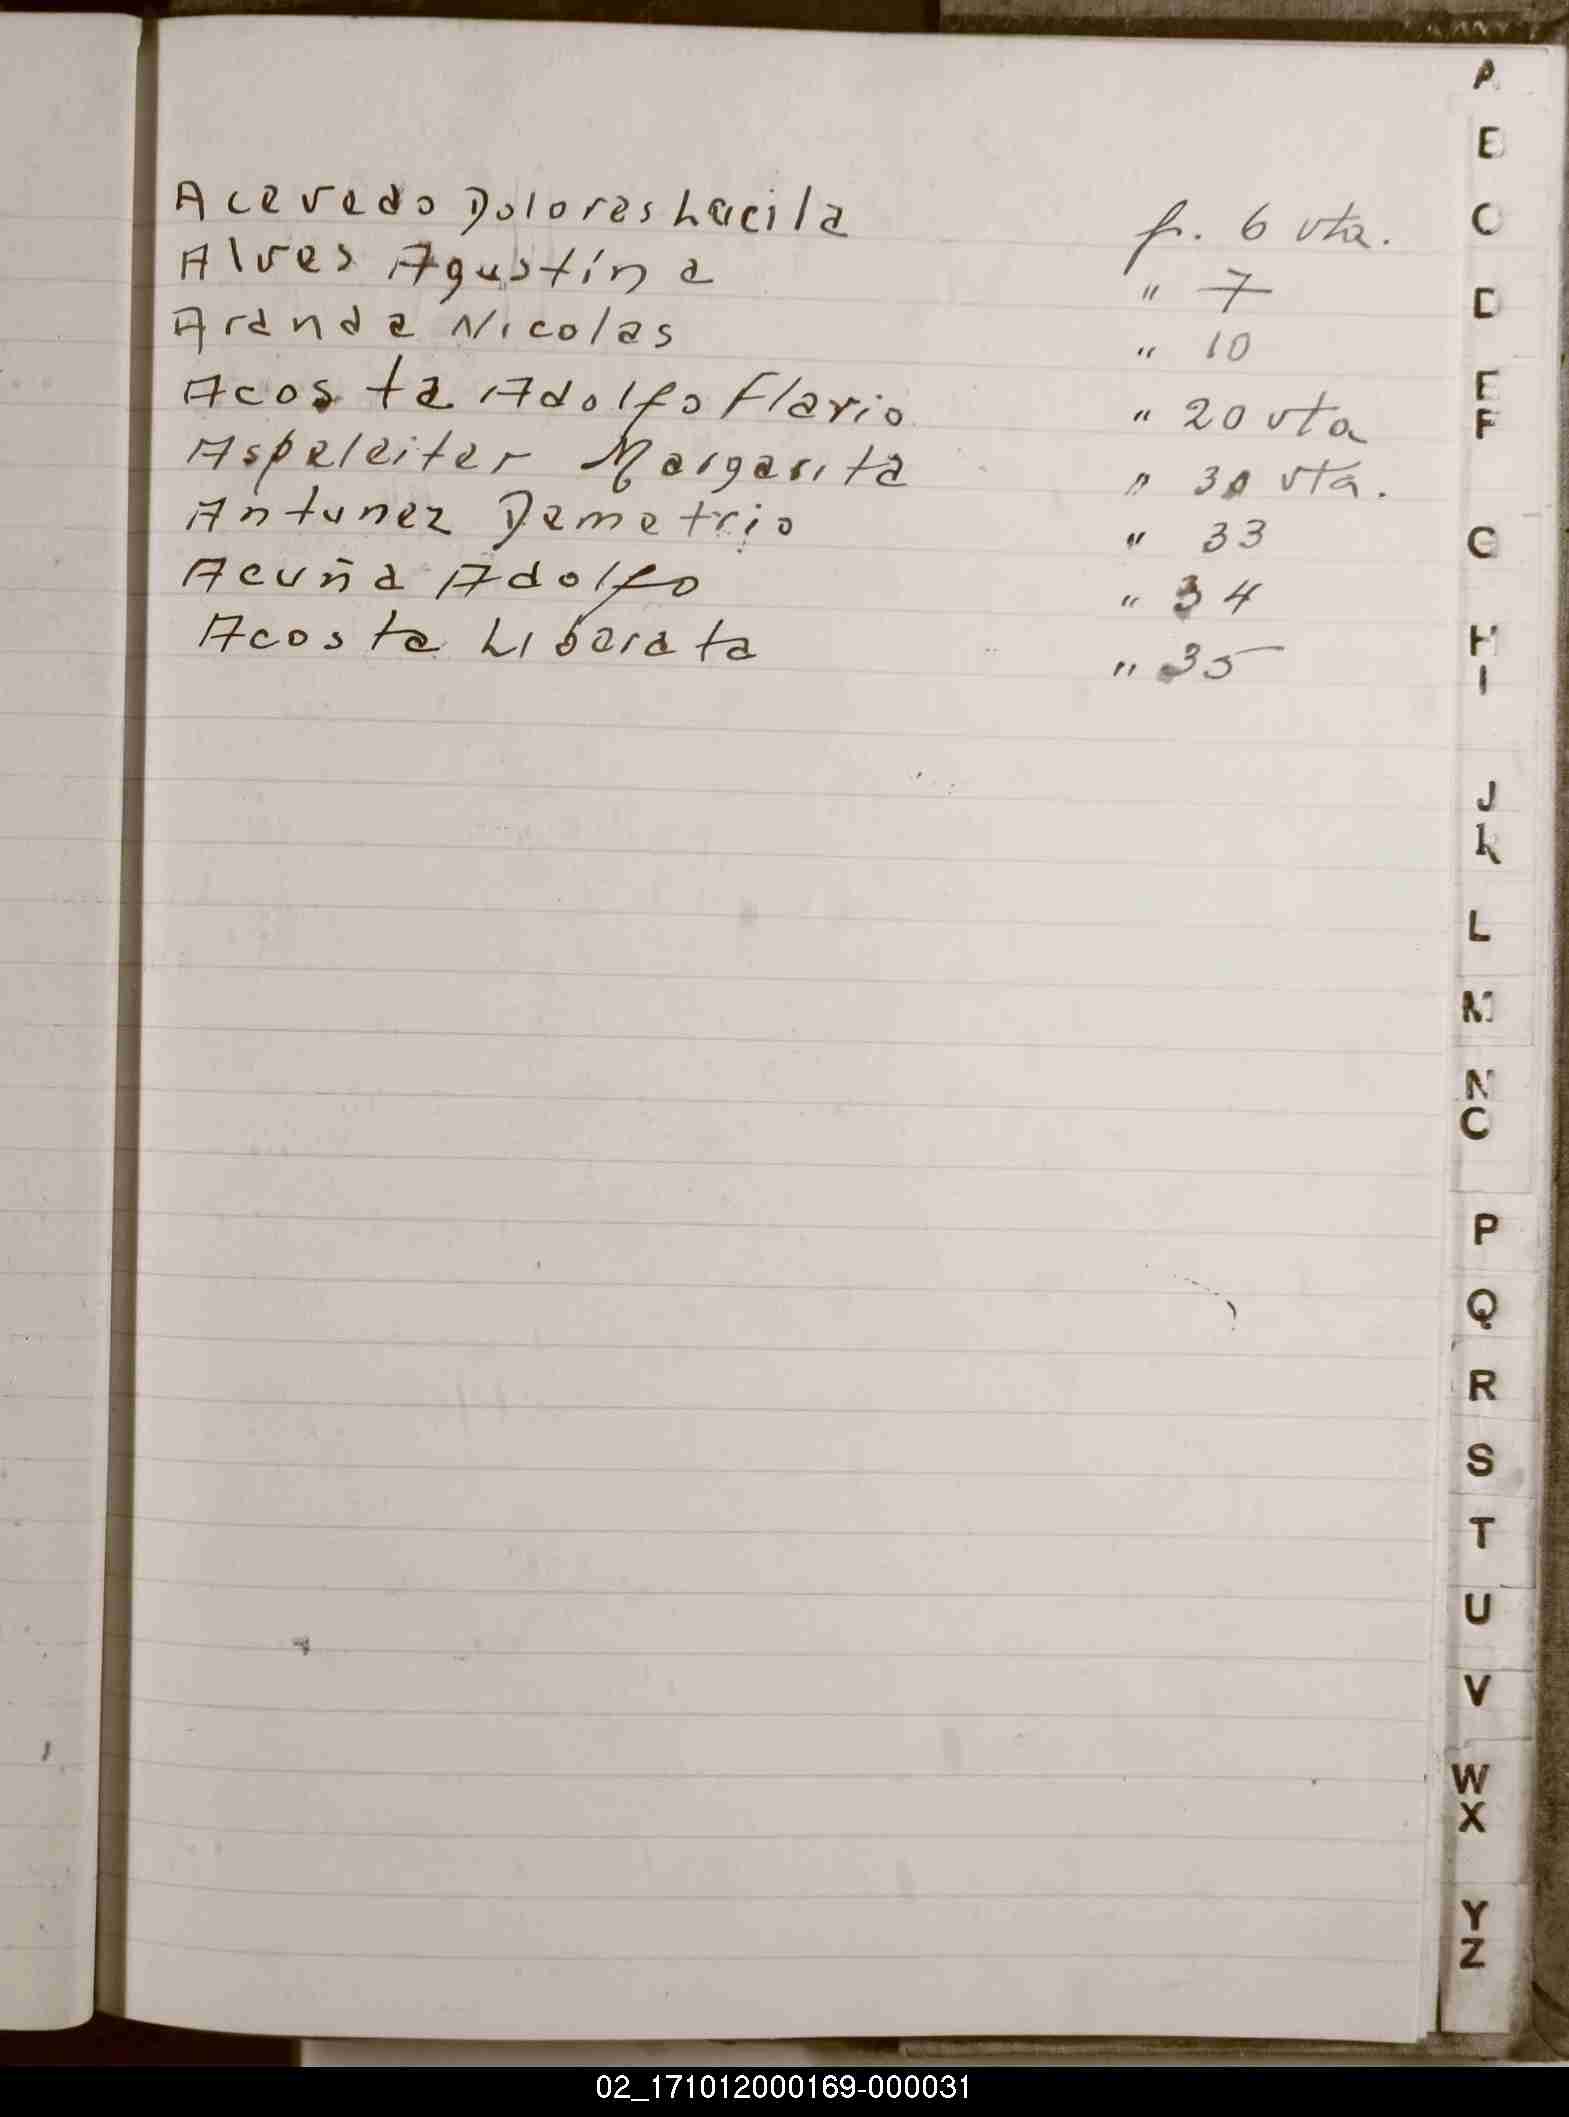 Acevedo Dolores Lucila f. 6 vta.
Alves Agustína " 7
Aranda Nicolas " 10
Acosta Adolfo Flavio " 20 vta
Aspeleiter Margarita " 30 vta.
Antunez Demetrio " 33
Acuña Adolfo " 34
Acosta Liberata " 35
A
B
C
D
E
F
G
H
I
J
K
L
M
N
O
P
Q
R
S
T
U
V
W
X
Y
Z
02_171012000169-000031